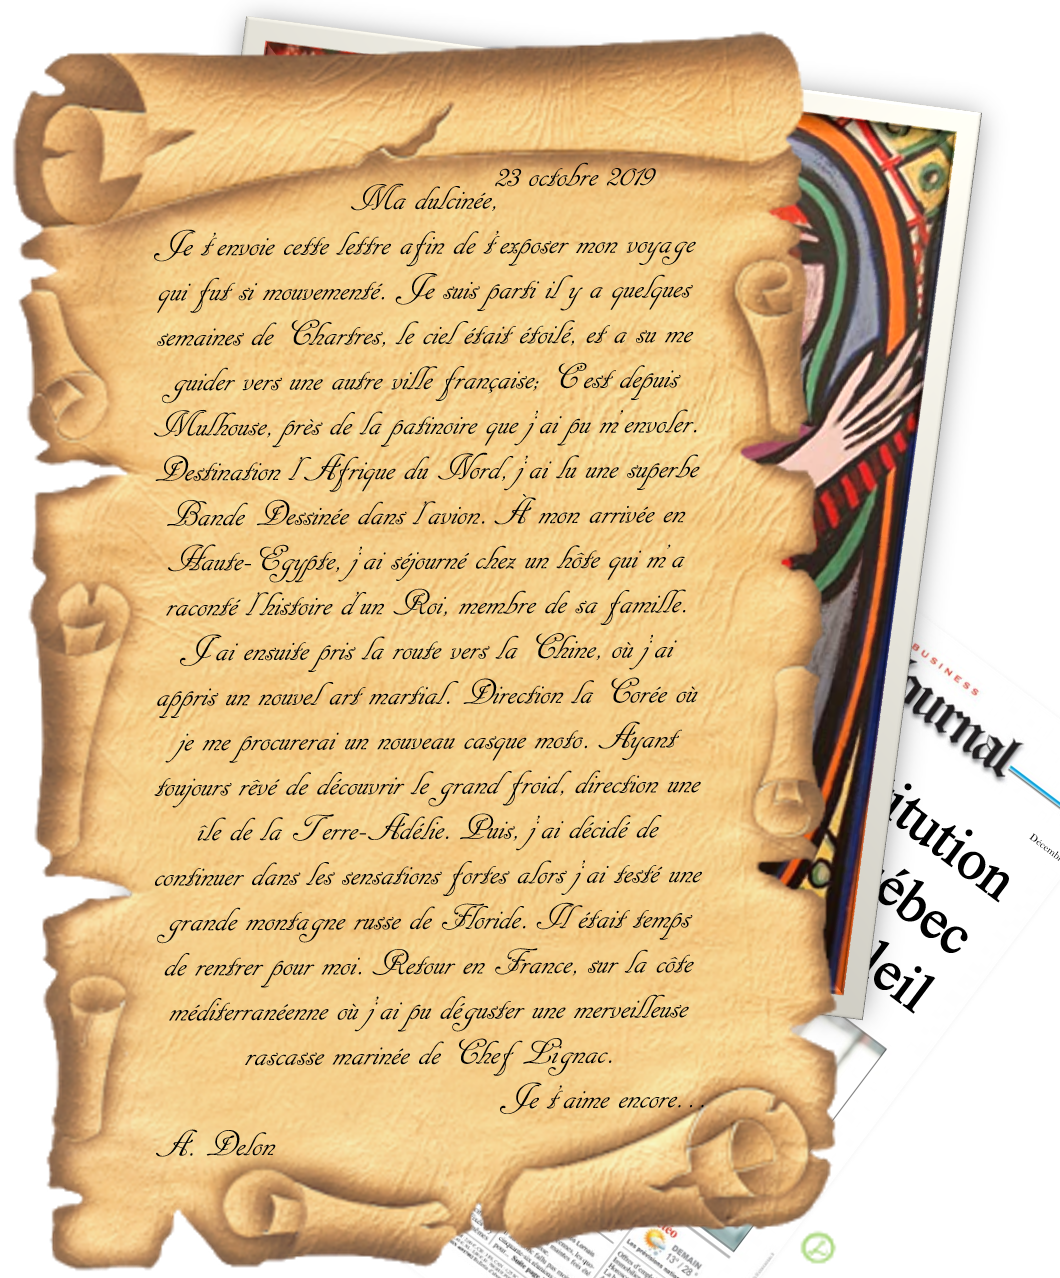 23 octobre 2019
Ma dulcinée,
Je t'envoie cette lettre afin de t'exposer mon voyage
qui fut si mouvementé. Je suis parti il y a quelques
semaines de Chartres, le ciel était étoilé, et a su me
guider vers une autre ville française; C'est depuis
Mulhouse, près de la patinoire que j'ai pu m'envoler.
Destination l'Afrique du Nord, j'ai lu une superbe
Bande Dessinée dans l'avion. À mon arrivée en
Haute-Egypte, j'ai séjourné chez un hôte qui m'a
raconté l'histoire d'un Roi, membre de sa famille.
J'ai ensuite pris la route vers la Chine, où j'ai
appris un nouvel art martial. Direction la Corée où
je me procurerai un nouveau casque moto. Ayant
toujours rêvé de découvrir le grand froid, direction une
île de la Terre-Adélie. Puis, j'ai décidé de
continuer dans les sensations fortes alors j'ai testé une
grande montagne russe de Floride. Il était temps
de rentrer pour moi. Retour en France, sur la côte
méditerranéenne où j'ai pu déguster une merveilleuse
rascasse marinée de Chef Lignac.
Je t'aime encore...
A. Delon
BUSINESS
Journal
itution
ébec
leil
DEMAIN
13°/28°